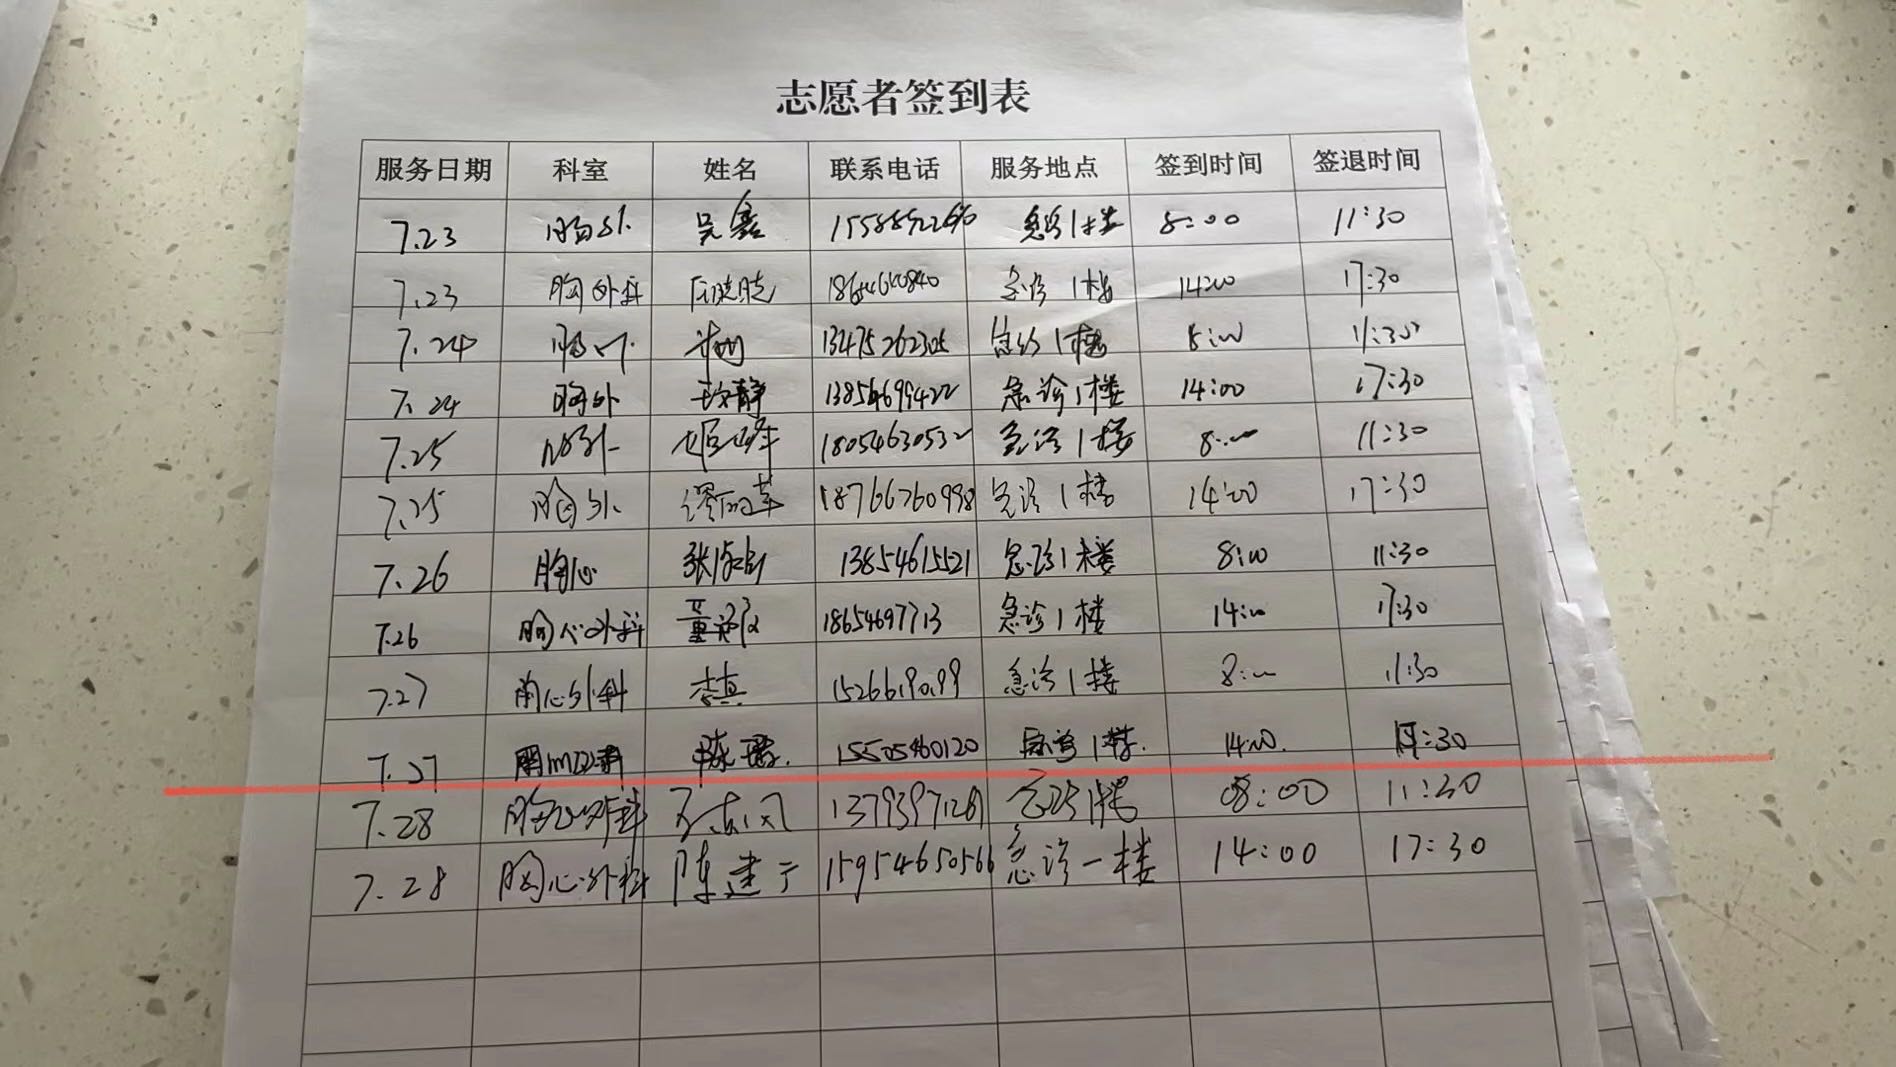 志愿者签到表
服务日期 科室 姓名 联系电话 服务地点 签到时间 签退时间
7.23 胸外 急诊1楼 8:00 11:30
7.23 胸外科 急诊1楼 14:00 17:30
7.24 胸外 13475262305 急诊1楼 8:00 11:30
7.24 胸外 静 13854699422 急诊1楼 14:00 17:30
7.25 胸外 18054630532 急诊1楼 8:00 11:30
7.25 胸外 18766760998 急诊1楼 14:00 17:30
7.26 胸心 张 13854615521 急诊1楼 8:00 11:30
7.26 胸心外科 董 18654697713 急诊1楼 14:00 17:30
7.27 胸心外科 急诊1楼 8:00 11:30
7.27 陈 15505460120 急诊1楼. 14:00. 17:30
7.28 胸心外科 急诊1楼 08:00 11:30
7.28 胸心外科 陈建于 15954650566 急诊一楼 14:00 17:30